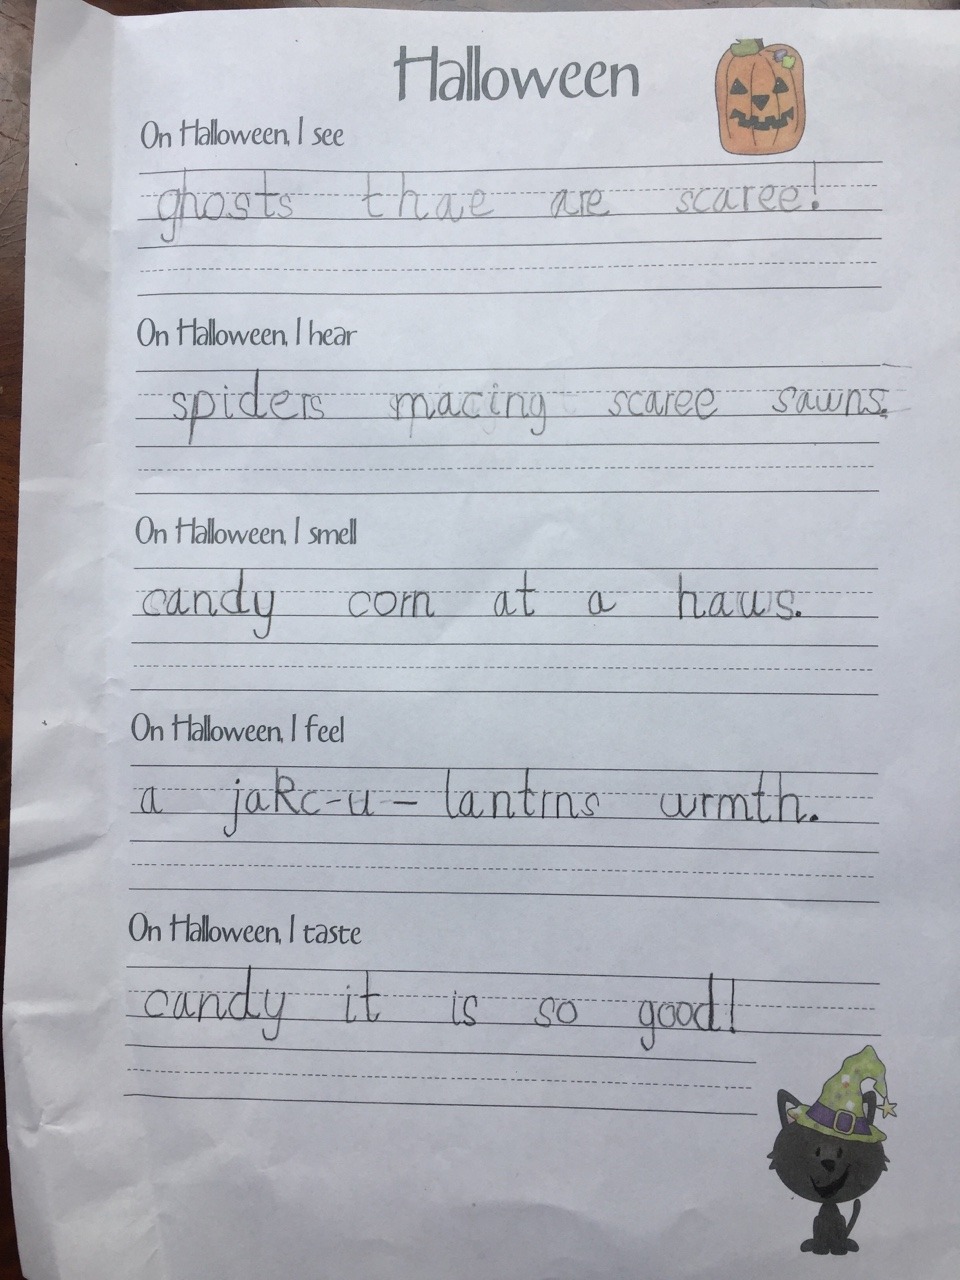 Halloween
On Halloween, I see
ghosts thae are scaree!
On Halloween, I hear
spiders macing scaree sawns.
On Halloween, I smell
candy corn at a haws.
On Halloween, I feel
a jakc-u-lantrns wrmth.
On Halloween, I taste
candy it is so good!